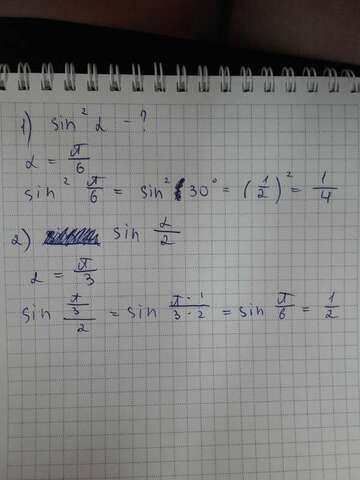 1) sin² α - ?
α = π/6
sin² π/6 = sin² 30° = (1/2)² = 1/4
2) sin α/2
α = π/3
sin (π/3)/2 = sin (π · 1)/(3 · 2) = sin π/6 = 1/2